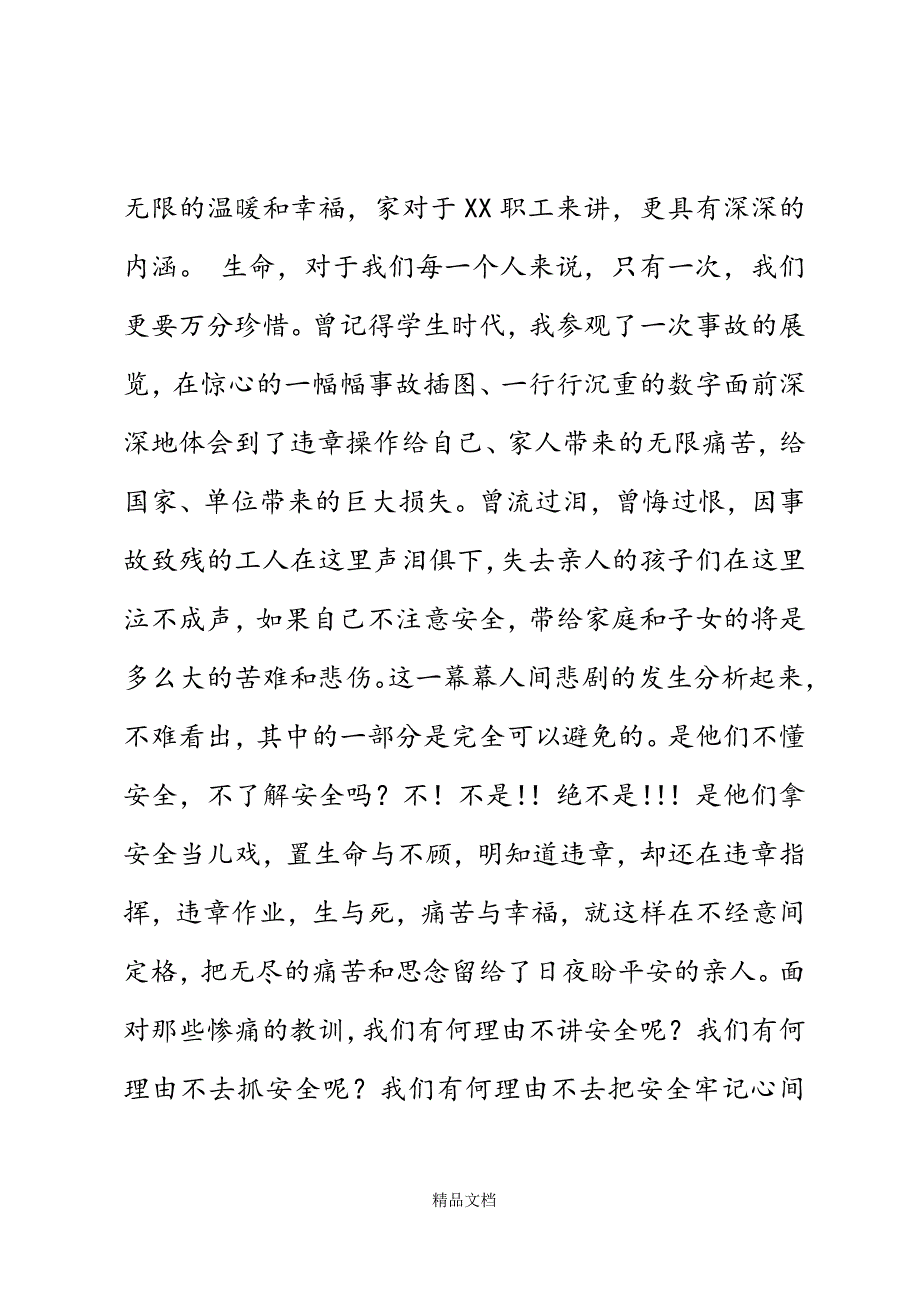 无限的温暖和幸福，家对于 XX 职工来讲，更具有深深的
内涵。 生命，对于我们每一个人来说，只有一次，我们
更要万分珍惜。曾记得学生时代，我参观了一次事故的展
览，在惊心的一幅幅事故插图、一行行沉重的数字面前深
深地体会到了违章操作给自己、家人带来的无限痛苦，给
国家、单位带来的巨大损失。曾流过泪，曾悔过恨，因事
故致残的工人在这里声泪俱下，失去亲人的孩子们在这里
泣不成声，如果自己不注意安全，带给家庭和子女的将是
多么大的苦难和悲伤。这一幕幕人间悲剧的发生分析起来，
不难看出，其中的一部分是完全可以避免的。是他们不懂
安全，不了解安全吗？不！不是!！绝不是!！!是他们拿
安全当儿戏，置生命与不顾，明知道违章，却还在违章指
挥，违章作业，生与死，痛苦与幸福，就这样在不经意间
定格，把无尽的痛苦和思念留给了日夜盼平安的亲人。面
对那些惨痛的教训，我们有何理由不讲安全呢？我们有何
理由不去抓安全呢？我们有何理由不去把安全牢记心间
精品文档